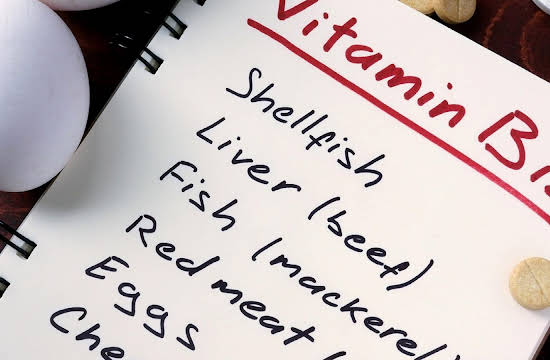 Vitamin B
Shellfish
Liver (beef)
Fish (mackerel)
Red meat (
Eggs
Che